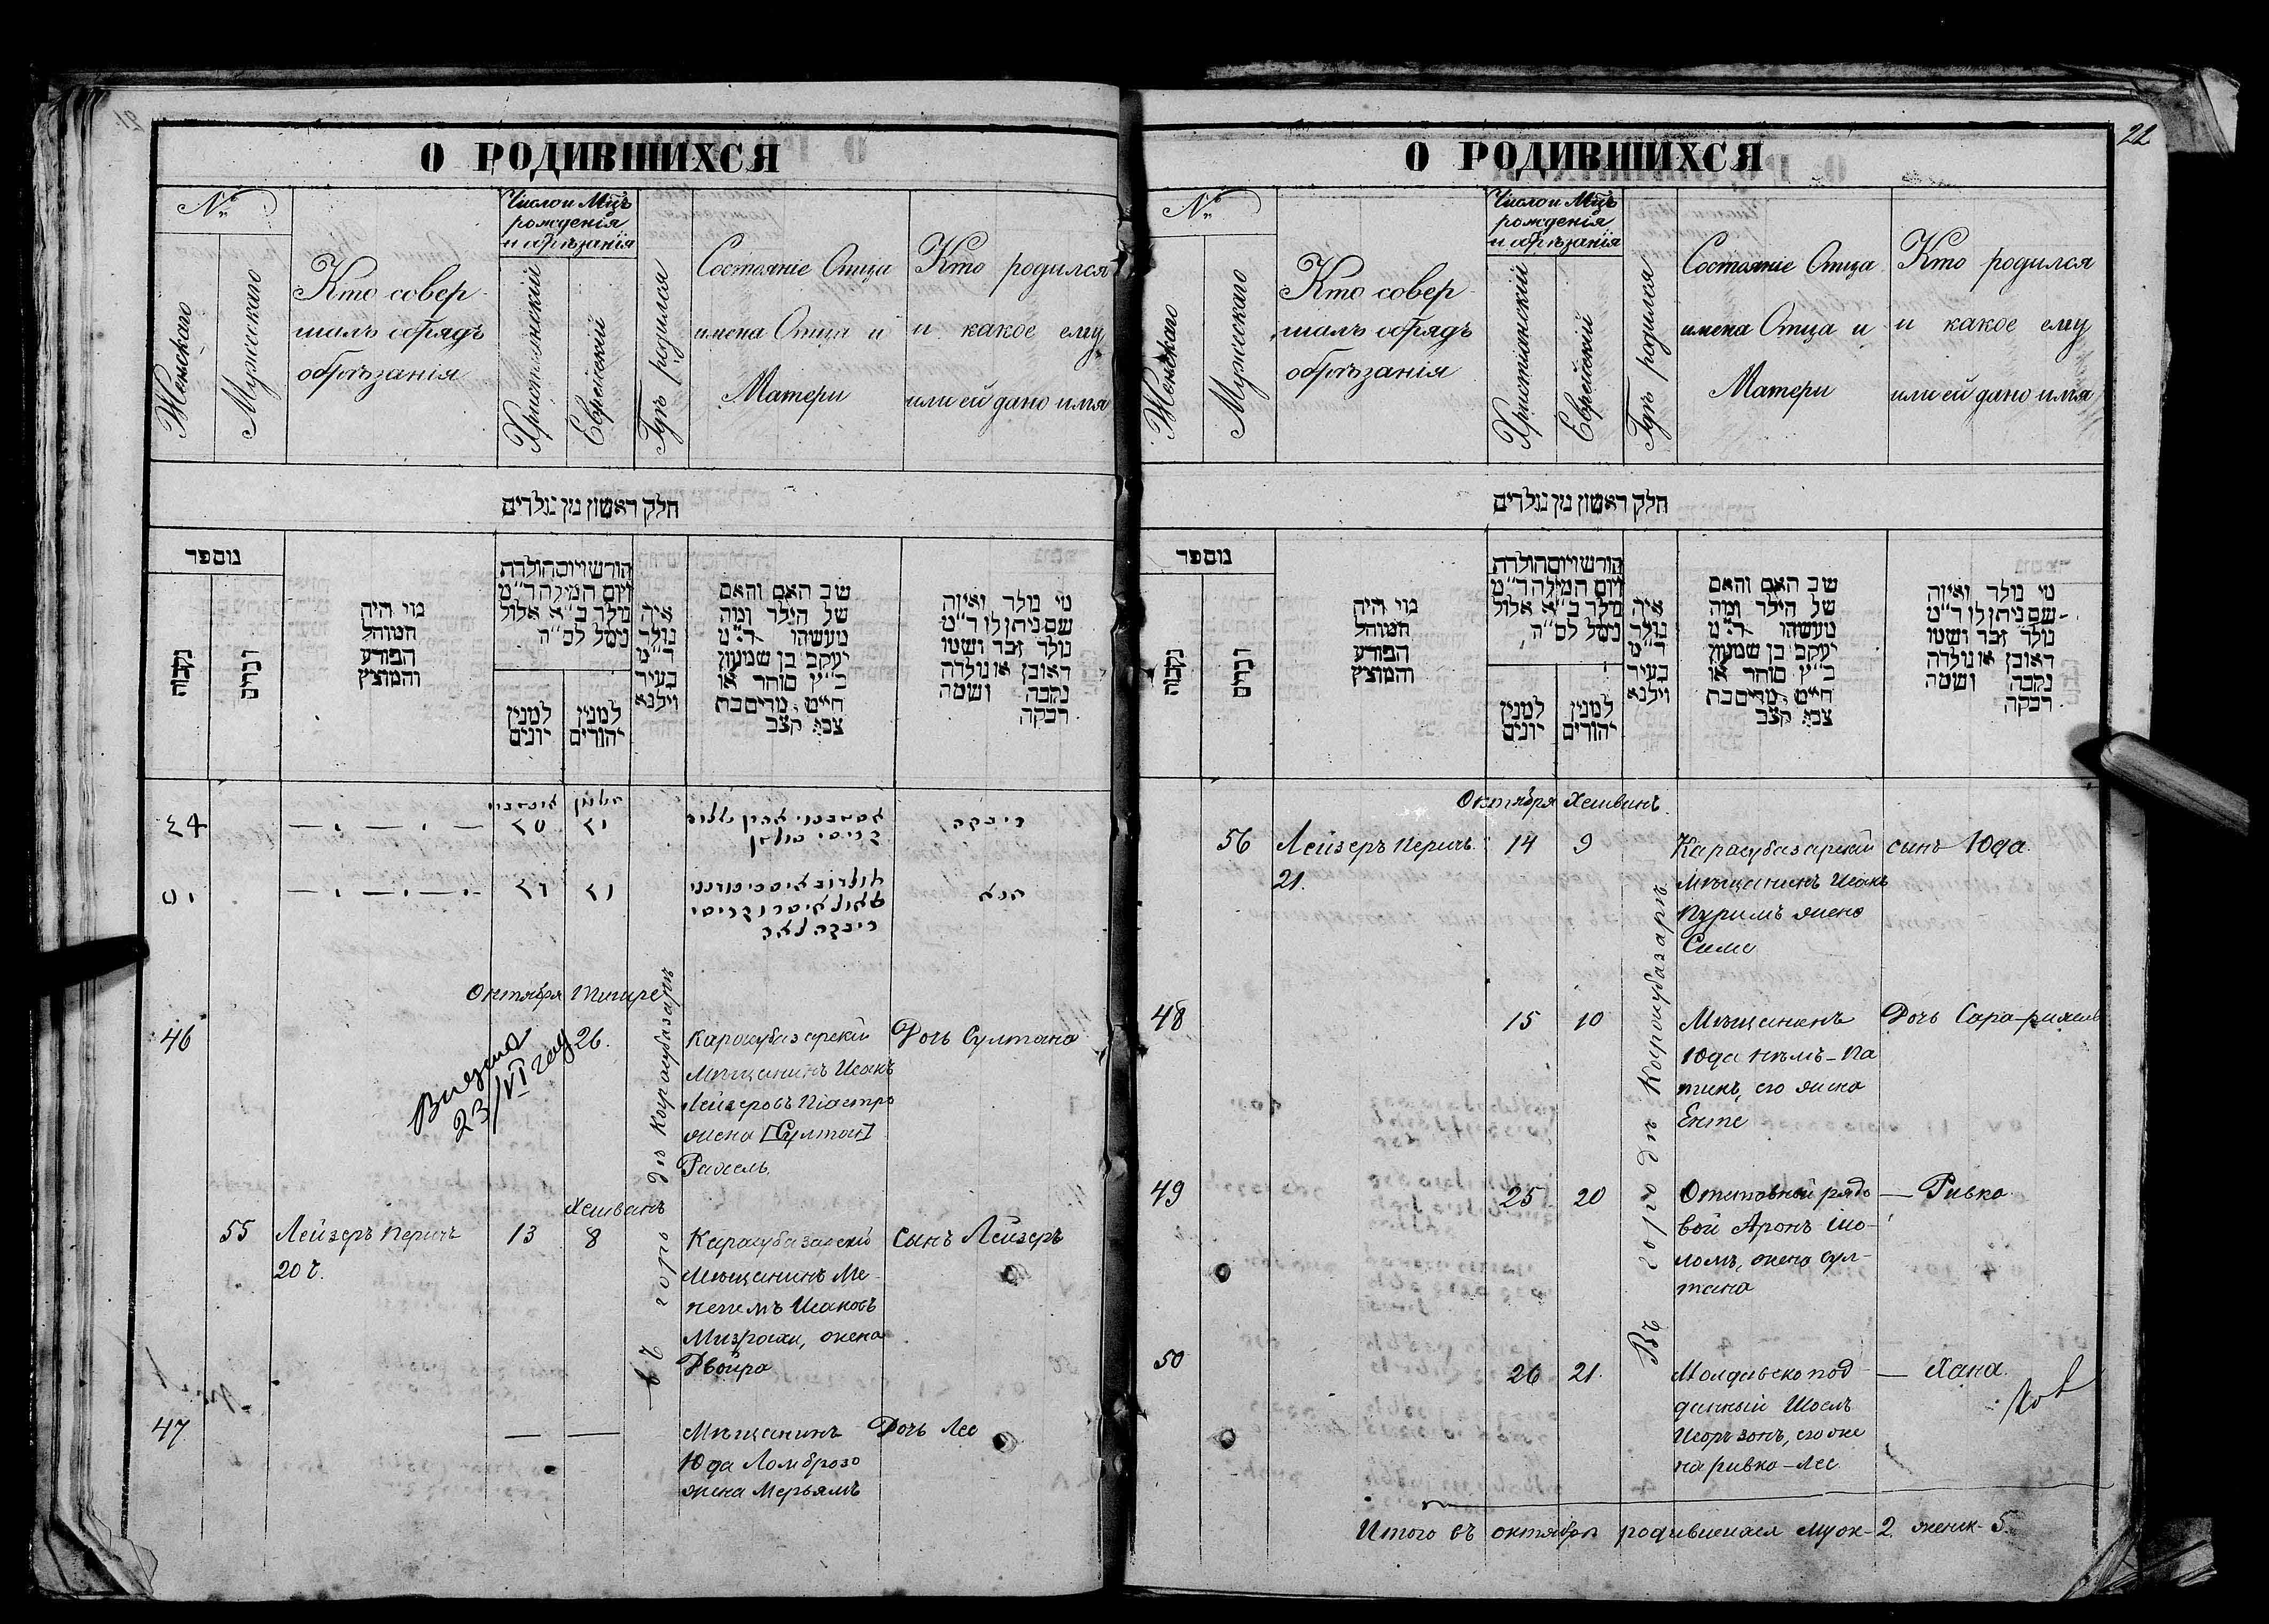 О РОДИВШИХСЯ
№
Женскаго
Мужескаго
Кто совер
шалъ обрядъ
обрѣзанія
Число и Мцъ
рожденія
и обрѣзанія
Христіянскій
Еврейскій
Гдѣ родился
Состояніе Отца
имена Отца и
Матери
Кто родился
и какое ему
или ей дано имя
חלק ראשון מן נולדים
מספר
נקבות
זכרים
מי היה
המוהל
הפורע
והמוצץ
חודש ויום הולדת
ויום המילה ד"מ
נולד ב"א אלול
נימל לס"ה
למנין
יונים
למנין
יהודים
איה
נולד
ד"מ
בעיר
וילנא
שב האם והאם
של הילד ומה
מעשהו ד"מ
יעקב בן שמעון
כ"ץ סוחר או
חייט, מרים בת
צבי קצב
מי נולד ואיזה
שם ניתן לו ד"מ
נולד זכר ושמו
ראובן או נולדה
נקבה ושמה
רבקה
ריבקה
חנא
Октября Тишре
46
26.
Карасубазарскій
Мѣщанинъ Исакъ
Лейзеровъ Піастро
жена [Султан]
Рахель
Дочь Султана
23/VI
въ городѣ Карасубазаръ
Хешванъ
55 Лейзеръ Перичъ 13 8
20 г.
Карасубазарскій
Мѣщанинъ Ме-
нахемъ Исаковъ
Мизрахи, жена
Двойра
Сынъ Лейзеръ
47 — —
Мѣщанинъ
Юда Ломброзо
жена Мерьямъ
Дочь Леа
22
О РОДИВШИХСЯ
№
Женскаго
Мужескаго
Кто совер
шалъ обрядъ
обрѣзанія
Число и Мцъ
рожденія
и обрѣзанія
Христіянскій
Еврейскій
Гдѣ родился
Состояніе Отца
имена Отца и
Матери
Кто родился
и какое ему
или ей дано имя
חלק ראשון מן נולדים
מספר
נקבות
זכרים
מי היה
המוהל
הפורע
והמוצץ
חודש ויום הולדת
ויום המילה ד"מ
נולד ב"א אלול
נימל לס"ה
למנין
יונים
למנין
יהודים
איה
נולד
ד"מ
בעיר
וילנא
שב האם והאם
של הילד ומה
מעשהו ד"מ
יעקב בן שמעון
כ"ץ סוחר או
חייט, מרים בת
צבי קצב
מי נולד ואיזה
שם ניתן לו ד"מ
נולד זכר ושמו
ראובן או נולדה
נקבה ושמה
רבקה
Октября Хешванъ
56 Лейзеръ Перичъ 14 9
21.
Карасубазарскій
Мѣщанинъ Исакъ
Пуримъ жена
Сима
сынъ Юда
Въ городѣ Карасубазаръ
48 15 10
Мѣщанинъ
Юда
его жена
Енте
Дочь Сара-
49 25 20
Отставной рядо
вой Аронъ Шо-
ломъ, жена Сул-
тана
— Ривка
50 26 21.
Молдавскопод-
данный
его же
на ривка-Леа
— Хана.
Итого въ октябрѣ родившихся муж- 2. женск- 5.